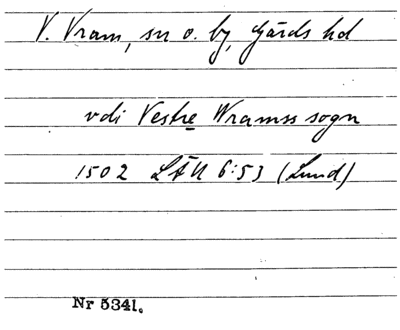 V. Vram, sn o. by, Gärds hd
vdi Vestre Wramss sogn
1502 LÄU 6:53 (Lund)
Nr 5341.